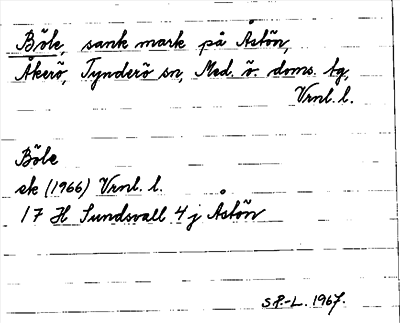 Böle, sank mark på Åstön,
Åkerö, Tynderö sn, Med. ö. doms. tg,
Vrnl. l.
Böle
ek (1966) Vrnl. l.
17 H Sundsvall 4 j Åstön
S.P.-L. 1967.